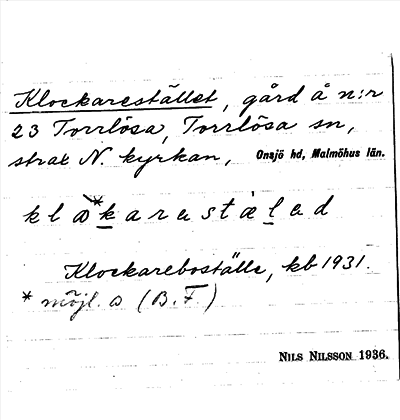 Klockarestället, gård å n:r
23 Torrlösa, Torrlösa sn,
strax N. kyrkan, Onsjö hd, Malmöhus län.
Klockareboställe, kb 1931.
* möjl. a (B.F.)
NILS NILSSON 1936.